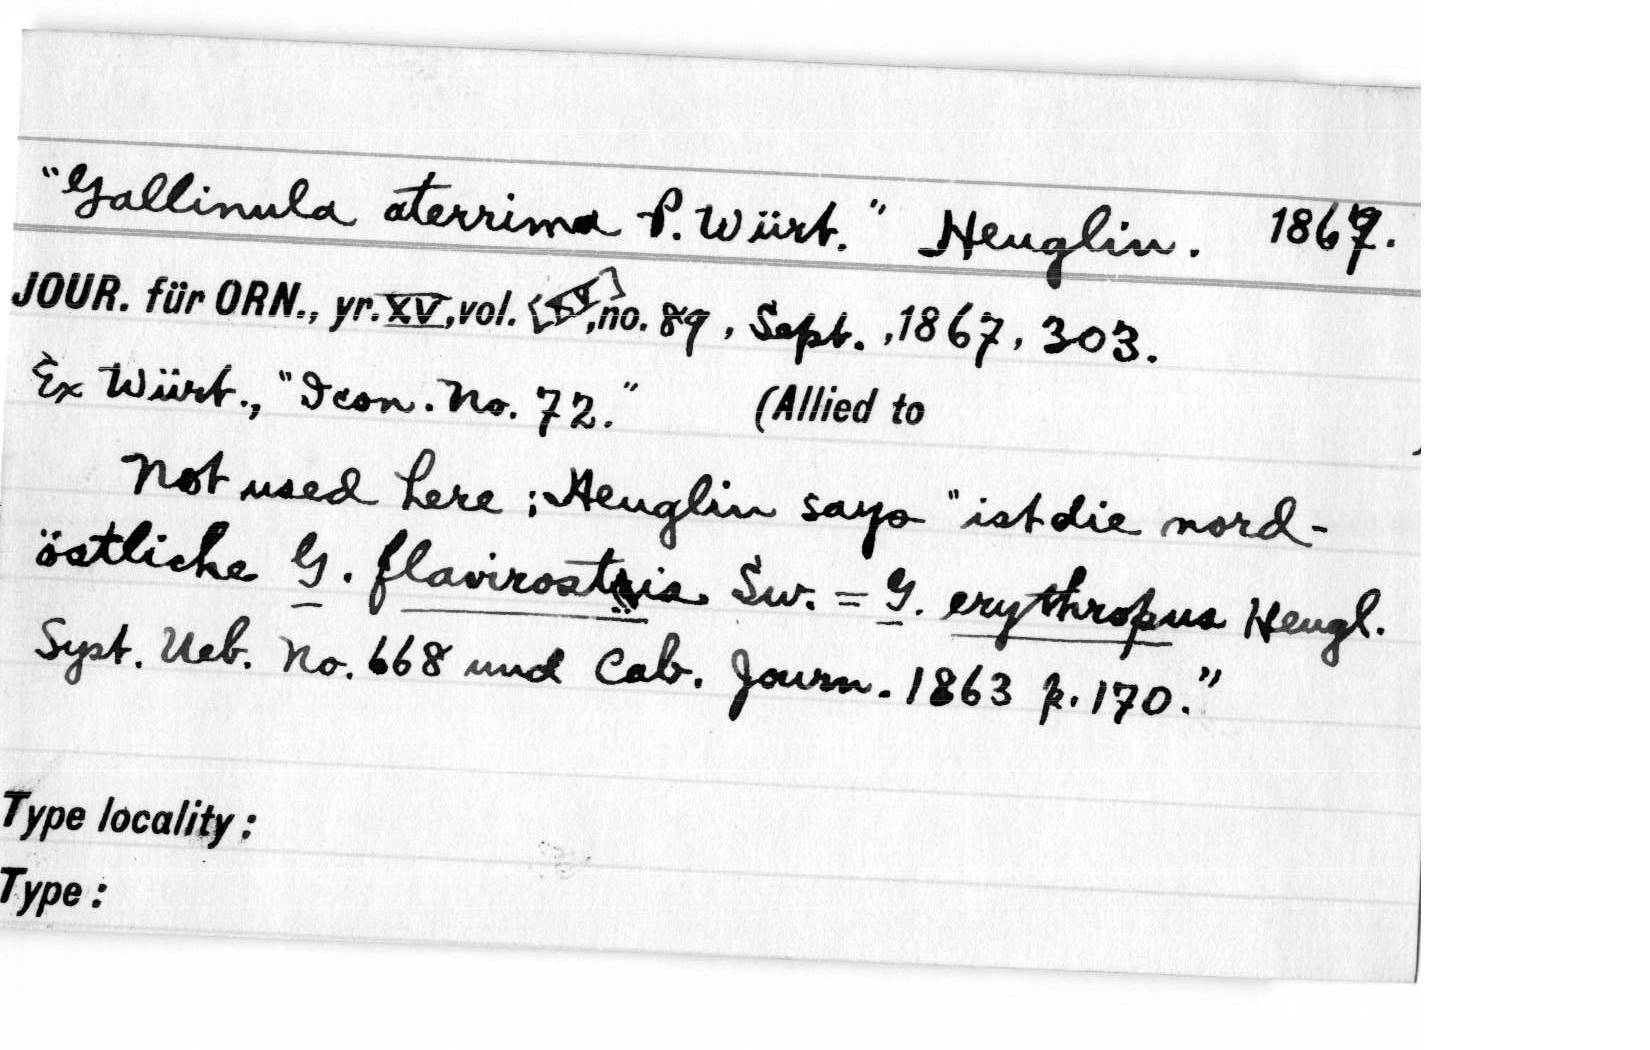 "Gallinula aterrima P. Würt." Heuglin. 1867.
JOUR. für ORN., yr. XV, vol. [XV], no. 89, Sept., 1867, 303.
Ex Würt., "Icon. No. 72." (Allied to )
Not used here; Heuglin says "ist die nord-
östliche G. flavirostris Sw. = G. erythropus Heugl.
Syst. Ueb. No. 668 und Cab. Journ. 1863 p. 170."
Type locality:
Type: